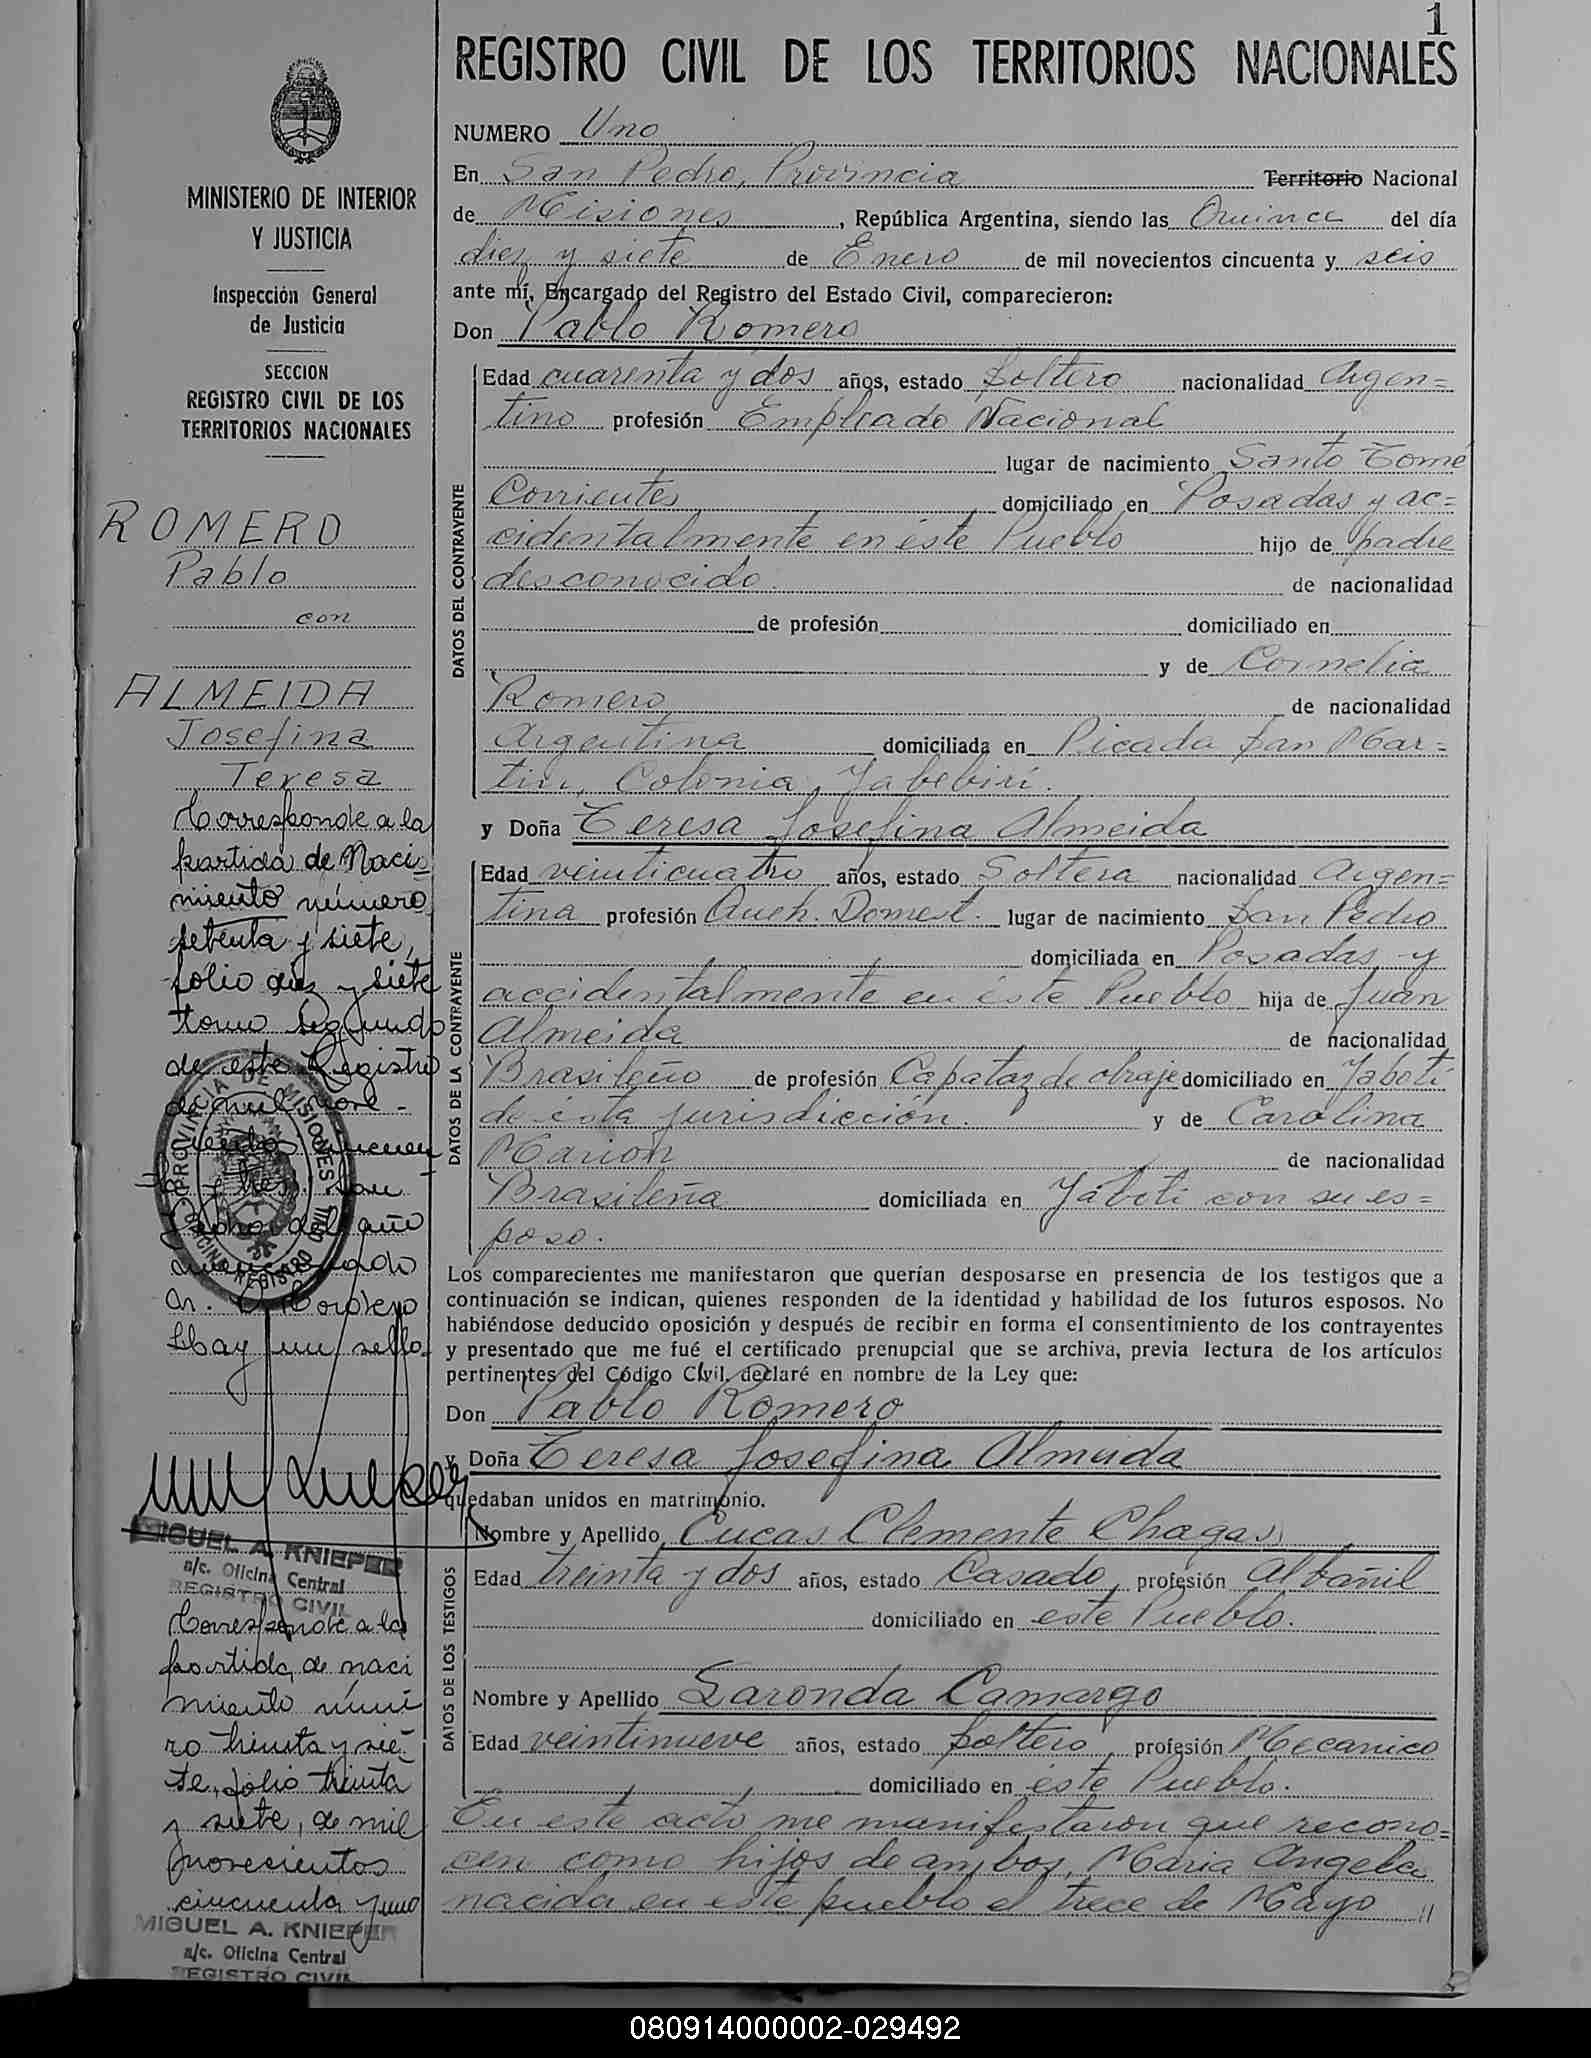 1
REGISTRO CIVIL DE LOS TERRITORIOS NACIONALES
MINISTERIO DE INTERIOR
Y JUSTICIA
Inspección General
de Justicia
SECCION
REGISTRO CIVIL DE LOS
TERRITORIOS NACIONALES
ROMERO
Pablo
con
ALMEIDA
Josefina
Teresa
Corresponde a la
partida de Naci-
miento número
setenta y siete,
folio diez y siete
tomo Segundo
de este Registro
de mil nove-
Pedro del año
Hay un sello.
PROVINCIA DE MISIONES
MIGUEL A. KNIEPER
a/c. Oficina Central
REGISTRO CIVIL
Corresponde a la
partida de naci
miento núme
ro treinta y sie-
te, folio treinta
y siete, de mil
novecientos
cincuenta y uno
MIGUEL A. KNIEPER
a/c. Oficina Central
REGISTRO CIVIL
NUMERO Uno
En San Pedro, Provincia Territorio Nacional
de Misiones, República Argentina, siendo las Quince del día
diez y siete de Enero de mil novecientos cincuenta y seis
ante mí, Encargado del Registro del Estado Civil, comparecieron:
Don Pablo Romero
DATOS DEL CONTRAYENTE
Edad cuarenta y dos años, estado Soltero nacionalidad Argen=
tino profesión Empleado Nacional
lugar de nacimiento Santo Tomé
Corrientes domiciliado en Posadas y ac=
cidentalmente en éste Pueblo hijo de padre
desconocido. de nacionalidad
de profesión domiciliado en
y de Cornelia
Romero de nacionalidad
Argentina domiciliada en Picada San Mar=
tin, Colonia Yabebirí.
y Doña Teresa Josefina Almeida
DATOS DE LA CONTRAYENTE
Edad veinticuatro años, estado Soltera nacionalidad Argen=
tina profesión Queh. Domest. lugar de nacimiento San Pedro
domiciliada en Posadas y
accidentalmente en éste Pueblo hija de Juan
Almeida de nacionalidad
Brasileño de profesión Capataz de obraje domiciliado en Yabotí
de ésta jurisdicción. y de Carolina
Marion de nacionalidad
Brasileña domiciliada en Yabotí con su es=
poso.
Los comparecientes me manifestaron que querían desposarse en presencia de los testigos que a
continuación se indican, quienes responden de la identidad y habilidad de los futuros esposos. No
habiéndose deducido oposición y después de recibir en forma el consentimiento de los contrayentes
y presentado que me fué el certificado prenupcial que se archiva, previa lectura de los artículos
pertinentes del Código Civil, declaré en nombre de la Ley que:
Don Pablo Romero
y Doña Teresa Josefina Almeida
quedaban unidos en matrimonio.
DATOS DE LOS TESTIGOS
Nombre y Apellido Lucas Clemente Chagas
Edad treinta y dos años, estado Casado, profesión Albañil
domiciliado en este Pueblo.
Nombre y Apellido Laronda Camargo
Edad veintinueve años, estado soltero, profesión Mecanico
domiciliado en éste Pueblo.
En este acto me manifestaron que recono=
cen como hijos de ambos, Maria Angela
nacida en este pueblo el trece de Mayo //
080914000002-029492